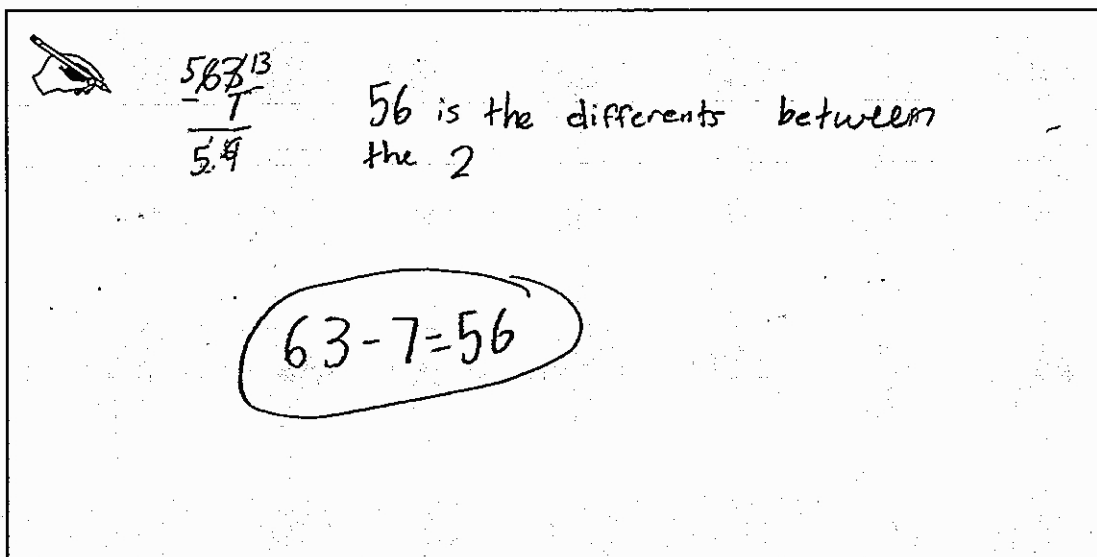 5 63 13
- 7
5
56 is the differents between
the 2
63-7=56